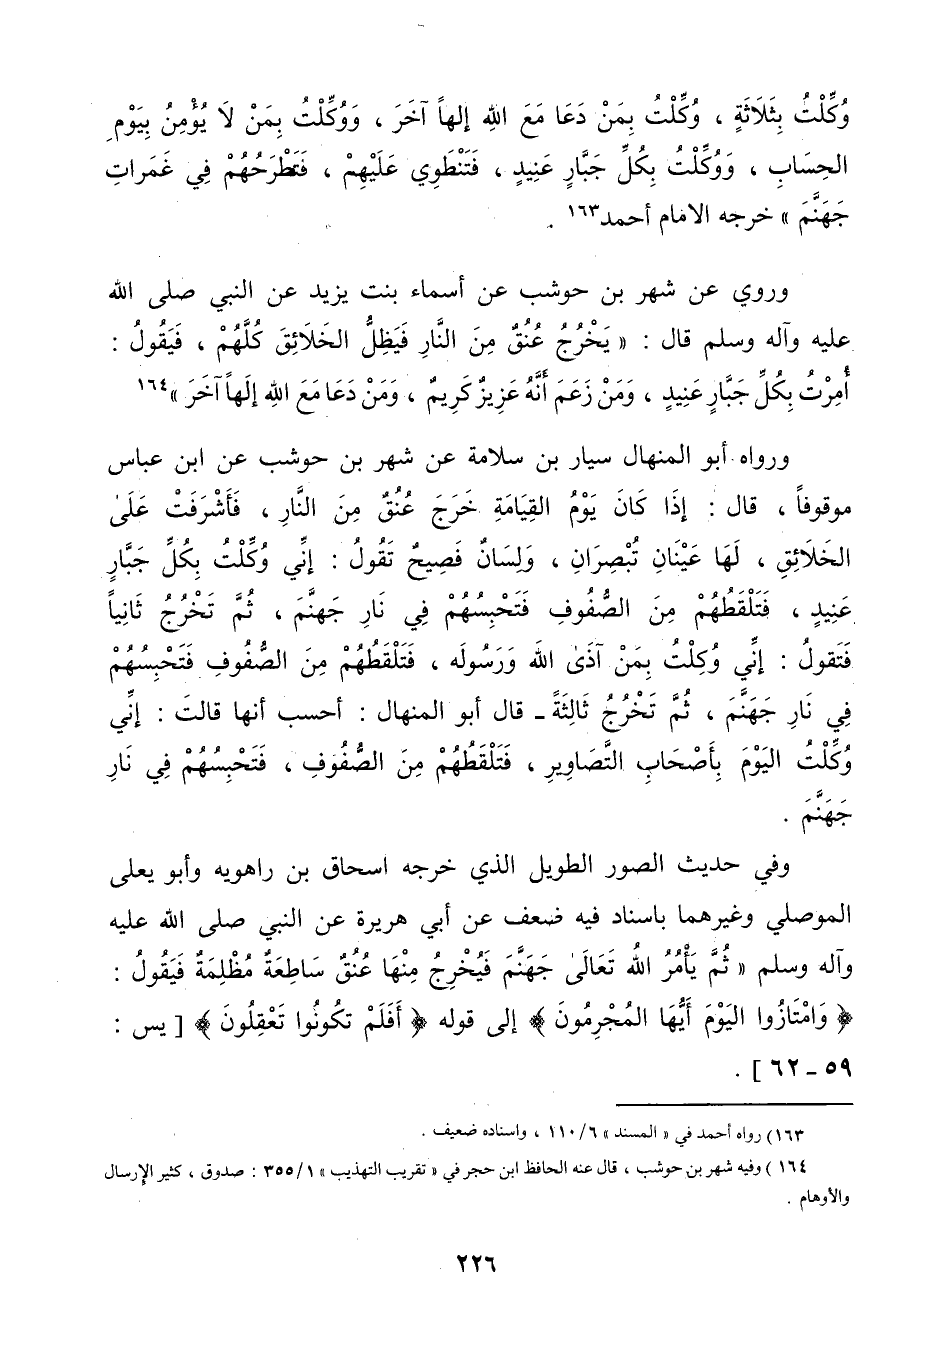 وُكِّلْتُ بِثَلَاثَةٍ ، وُكِّلْتُ بِمَنْ دَعَا مَعَ اللهِ إلهاً آخَرَ ، وَوُكِّلْتُ بِمَنْ لَا يُؤْمِنُ بِيَوْمِ
الحِسَابِ ، وَوُكِّلْتُ بِكُلِّ جَبَّارٍ عَنِيدٍ ، فَتَنْطَوِي عَلَيْهِمْ ، فَتَطْرَحُهُمْ فِي غَمَراتِ
جَهَنَّمَ » خرجه الامام أحمد١٦٣ .
وروي عن شهر بن حوشب عن أسماء بنت يزيد عن النبي صلى الله
عليه وآله وسلم قال : « يَخْرُجُ عُنُقٌ مِنَ النَّارِ فَيَظِلُّ الخَلائِقَ كُلَّهُمْ ، فَيَقُولُ :
أُمِرْتُ بِكُلِّ جَبَّارٍ عَنِيدٍ ، وَمَنْ زَعَمَ أَنَّهُ عَزِيزٌ كَرِيمٌ ، وَمَنْ دَعَا مَعَ اللهِ إلَهاً آخَرَ »١٦٤
ورواه أبو المنهال سيار بن سلامة عن شهر بن حوشب عن ابن عباس
موقوفاً ، قال : إذَا كَانَ يَوْمُ القِيَامَةِ خَرَجَ عُنُقٌ مِنَ النَّارِ ، فَأَشْرَفَتْ عَلَىٰ
الخَلَائِقِ ، لَهَا عَيْنَانِ تُبْصِرَانِ ، وَلِسَانٌ فَصِيحٌ تَقُولُ : إنِّي وُكِّلْتُ بِكُلِّ جَبَّارٍ
عَنِيدٍ ، فَتَلْقَطُهُمْ مِنَ الصُّفُوفِ فَتَحْبِسُهُمْ فِي نَارِ جَهنَّمَ ، ثُمَّ تَخْرُجُ ثَانِياً
فَتَقولُ : إنِّي وُكِلْتُ بِمَنْ آذَىٰ اللهَ وَرَسُولَه ، فَتَلْقَطُهُمْ مِنَ الصُّفُوفِ فَتَحْبِسُهُمْ
فِي نَارِ جَهَنَّمَ ، ثُمَّ تَخْرُجُ ثَالِثَةً ـ قال أبو المنهال : أحسب أنها قالت : إنِّي
وُكِّلْتُ اليَوْمَ بِأَصْحَابِ التَّصَاوِيرِ ، فَتَلْقَطُهُمْ مِنَ الصُّفُوفِ ، فَتَحْبِسُهُمْ فِي نَارِ
جَهَنَّمَ .
وفي حديث الصور الطويل الذي خرجه اسحاق بن راهويه وأبو يعلى
الموصلي وغيرهما باسناد فيه ضعف عن أبي هريرة عن النبي صلى الله عليه
وآله وسلم « ثُمَّ يَأْمُرُ اللهُ تَعَالَىٰ جَهَنَّمَ فَيُخْرِجُ مِنْهَا عُنُقٌ سَاطِعَةٌ مُظْلِمَةٌ فَيَقُولُ :
﴿ وَامْتَازُوا اليَوْمَ أَيُّهَا المُجْرِمُونَ ﴾ إلى قوله ﴿ أَفَلَمْ تَكُونُوا تَعْقِلُونَ ﴾ [ يس :
٥٩ ـ ٦٢ ] .
١٦٣) رواه أحمد في « المسند » ١١٠/٦ ، واسناده ضعيف .
١٦٤ ) وفيه شهر بن حوشب ، قال عنه الحافظ ابن حجر في « تقريب التهذيب » ٣٥٥/١ : صدوق ، كثير الإرسال
والأوهام .
٢٢٦